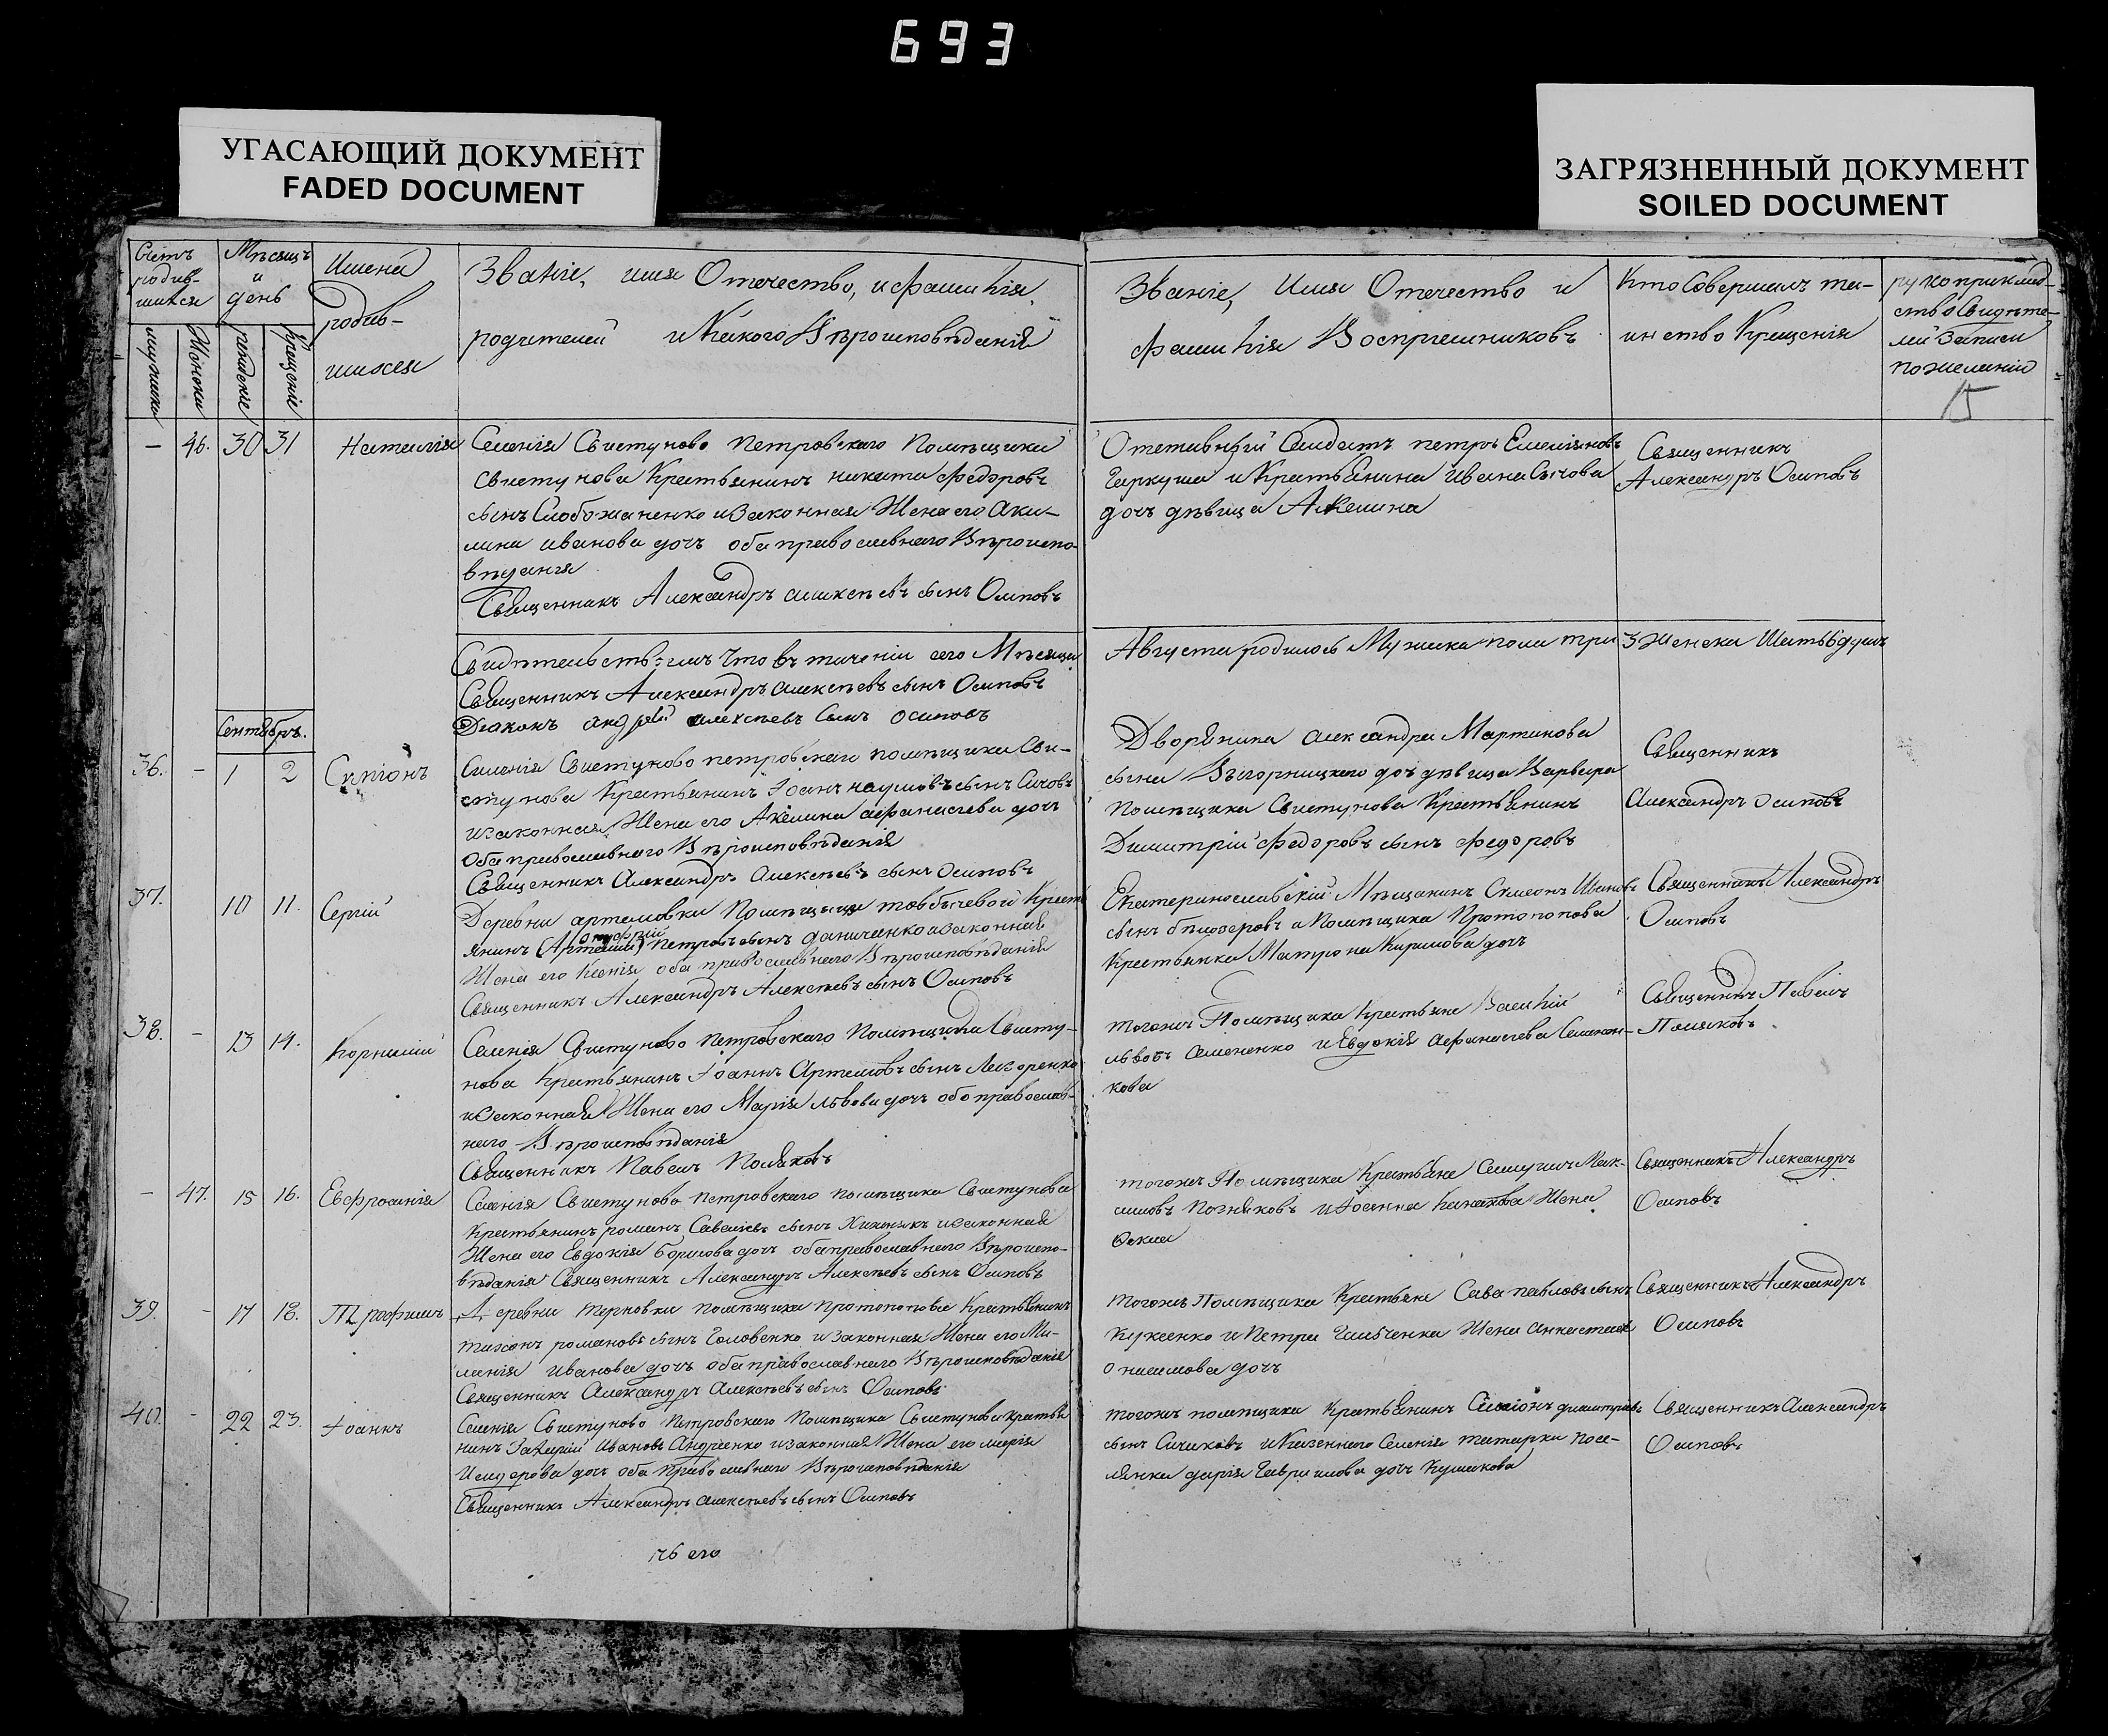 693
УГАСАЮЩИЙ ДОКУМЕНТ
FADED DOCUMENT
ЗАГРЯЗНЕННЫЙ ДОКУМЕНТ
SOILED DOCUMENT
Счетъ родив-шихся
Мѣсяцъ и день
Имена родив-шихся
Званіе, имя Отечество, и фамилія
родителей и Какого Вѣроисповѣданія
мужеска
Женска
рожденіе
крещеніе
Званіе, Имя Отечество и
фамилія Воспріемниковъ
Кто Совершалъ та-
инство Крещенія
рукоприклад-
ство Свидѣте-
лей Записи
пожеланію
15
— 46. 30 31 Наталія
Селенія Свистуново Петровского Помѣщика
Свистунова Крестьянинъ никита Федоровъ
сынъ Слобожаненко и Законная Жена его Аки-
лина иванова дочь оба православнаго Вѣроиспо-
вѣданія
Священникъ Александръ алексѣевъ сынъ Осиповъ
Отставный Солдатъ петръ Емеліановъ
Гаркуша и Крестьянина ивана Сычова
дочь дѣвица Акелина
Священникъ
Александръ Осиповъ
Свидѣтельствуемъ Что въ теченіи сего Мѣсяца
Августа родилось Мужеска пола три 3 Женска Шесть 6 душъ
Священникъ Александръ алексѣевъ сынъ Осиповъ
Діаконъ андрей алексѣевъ Сынъ осиповъ
Сентябрь.
36. — 1 2
Селенія Свистуново петровскаго помѣщика Сви-
стунова Крестьянинъ Іоанъ наумовъ сынъ Сычовъ
и законная Жена его Акелина афанасіева дочь
Оба православнаго Вѣроисповѣданія
Священникъ Александръ Алексѣевъ сынъ Осиповъ
Дворянина александра Мартинова
сына дочь дѣвица Варвара
помѣщика Свистунова Крестьянинъ
Димитрій Федоровъ сынъ Федоровъ
Священникъ
Александръ Осиповъ
37. 10 11. Сергій
Деревни артемовки Помѣщицы Крест
онуфрій
янинъ (Артемій) Петровъ сынъ даниченко и законная
Жена его Ксенія оба православнаго Вѣроисповѣданія
Священникъ Александръ Алексѣевъ сынъ Осиповъ
Екатеринославскій Мѣщанинъ Симеонъ Ивановъ
сынъ бѣлозеровъ и Помѣщика Протопопова
Крестьянка Матрона Кирилова дочь
Священникъ Александръ
Осиповъ
38. — 13 14. Корнилій
Селенія Свистуново Петровскаго Помѣщика Свисту-
нова Крестьянинъ Іоаннъ Артемовъ сынъ
и Законная Жена его Марія львова дочь оба православ-
наго Вѣроисповѣданія
Священникъ Павелъ Поляковъ
тогожъ Помѣщика Крестьяне Василій
львовъ Семененко и Евдокія афанасіева
кова
Священникъ Павелъ
Поляковъ
— 47. 15 16. Евфросинія
Селенія Свистуново петровскаго помѣщика Свистунова
Крестьянинъ романъ Савельевъ сынъ и законная
Жена его Евдокія борисова дочь оба православнаго Вѣроиспо-
вѣданія Священникъ Александръ Алексѣевъ сынъ Осиповъ
тогожъ Помѣщика Крестьяне Самуилъ Мак-
симовъ Позняковъ и Іоанна Жена
Священникъ Александръ
Осиповъ
39. — 17 18. Трофимъ
Деревни терновки помѣщика протопопова Крестьянинъ
тихонъ романовъ сынъ Головенко и законная Жена его Ми-
ланія иванова дочь оба православнаго Вѣроисповѣданія
Священникъ Александръ Алексѣевъ сынъ Осиповъ
тогожъ Помѣщика Крестьяне Сава павловъ сынъ
Куксенко и Петра Жена анастасія
онисимова дочь
Священникъ Александръ
Осиповъ
40. — 22 23. Іоаннъ
Селенія Свистуново Петровскаго Помѣщика Свистунова крестья
нинъ Захарій Ивановъ Андріенко и законная Жена его марія
дочь оба Православнаго Вѣроисповѣданія
Священникъ Александръ алексѣевъ сынъ Осиповъ
тогожъ помѣщика Крестьянинъ Симіонъ димитріевъ
сынъ и Казеннаго Селенія татарки посе-
лянка дарія Гаврилова дочь
Священникъ Александръ
Осиповъ